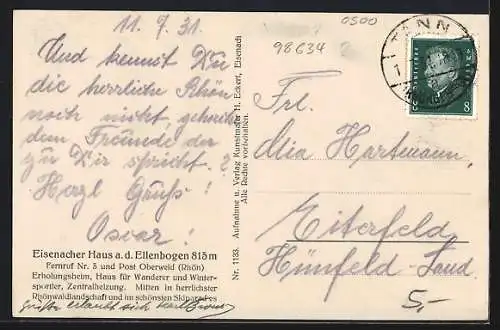 11. 7. 31.
Und kennst Du
die herrliche Rhön
noch nicht, gehorche
dem Freunde der
zu Dir spricht.
Herzl. Gruß!
Oscar!
Eisenacher Haus a. d. Ellenbogen 815 m
Fernruf Nr. 5 und Post Oberweid (Rhön)
Erholungsheim, Haus für Wanderer und Winter-
sportler, Zentralheizung. Mitten in herrlichster
Rhönwaldlandschaft und im schönsten Skiparadies
Grüße erlaubt sich
Nr. 1133. Aufnahme u. Verlag Kunstmaler H. Eckert, Eisenach
Alle Rechte vorbehalten.
0500
98634
TANN
8
Frl.
Mia Hartmann,
Eiterfeld
Hünfeld-Land
5,-